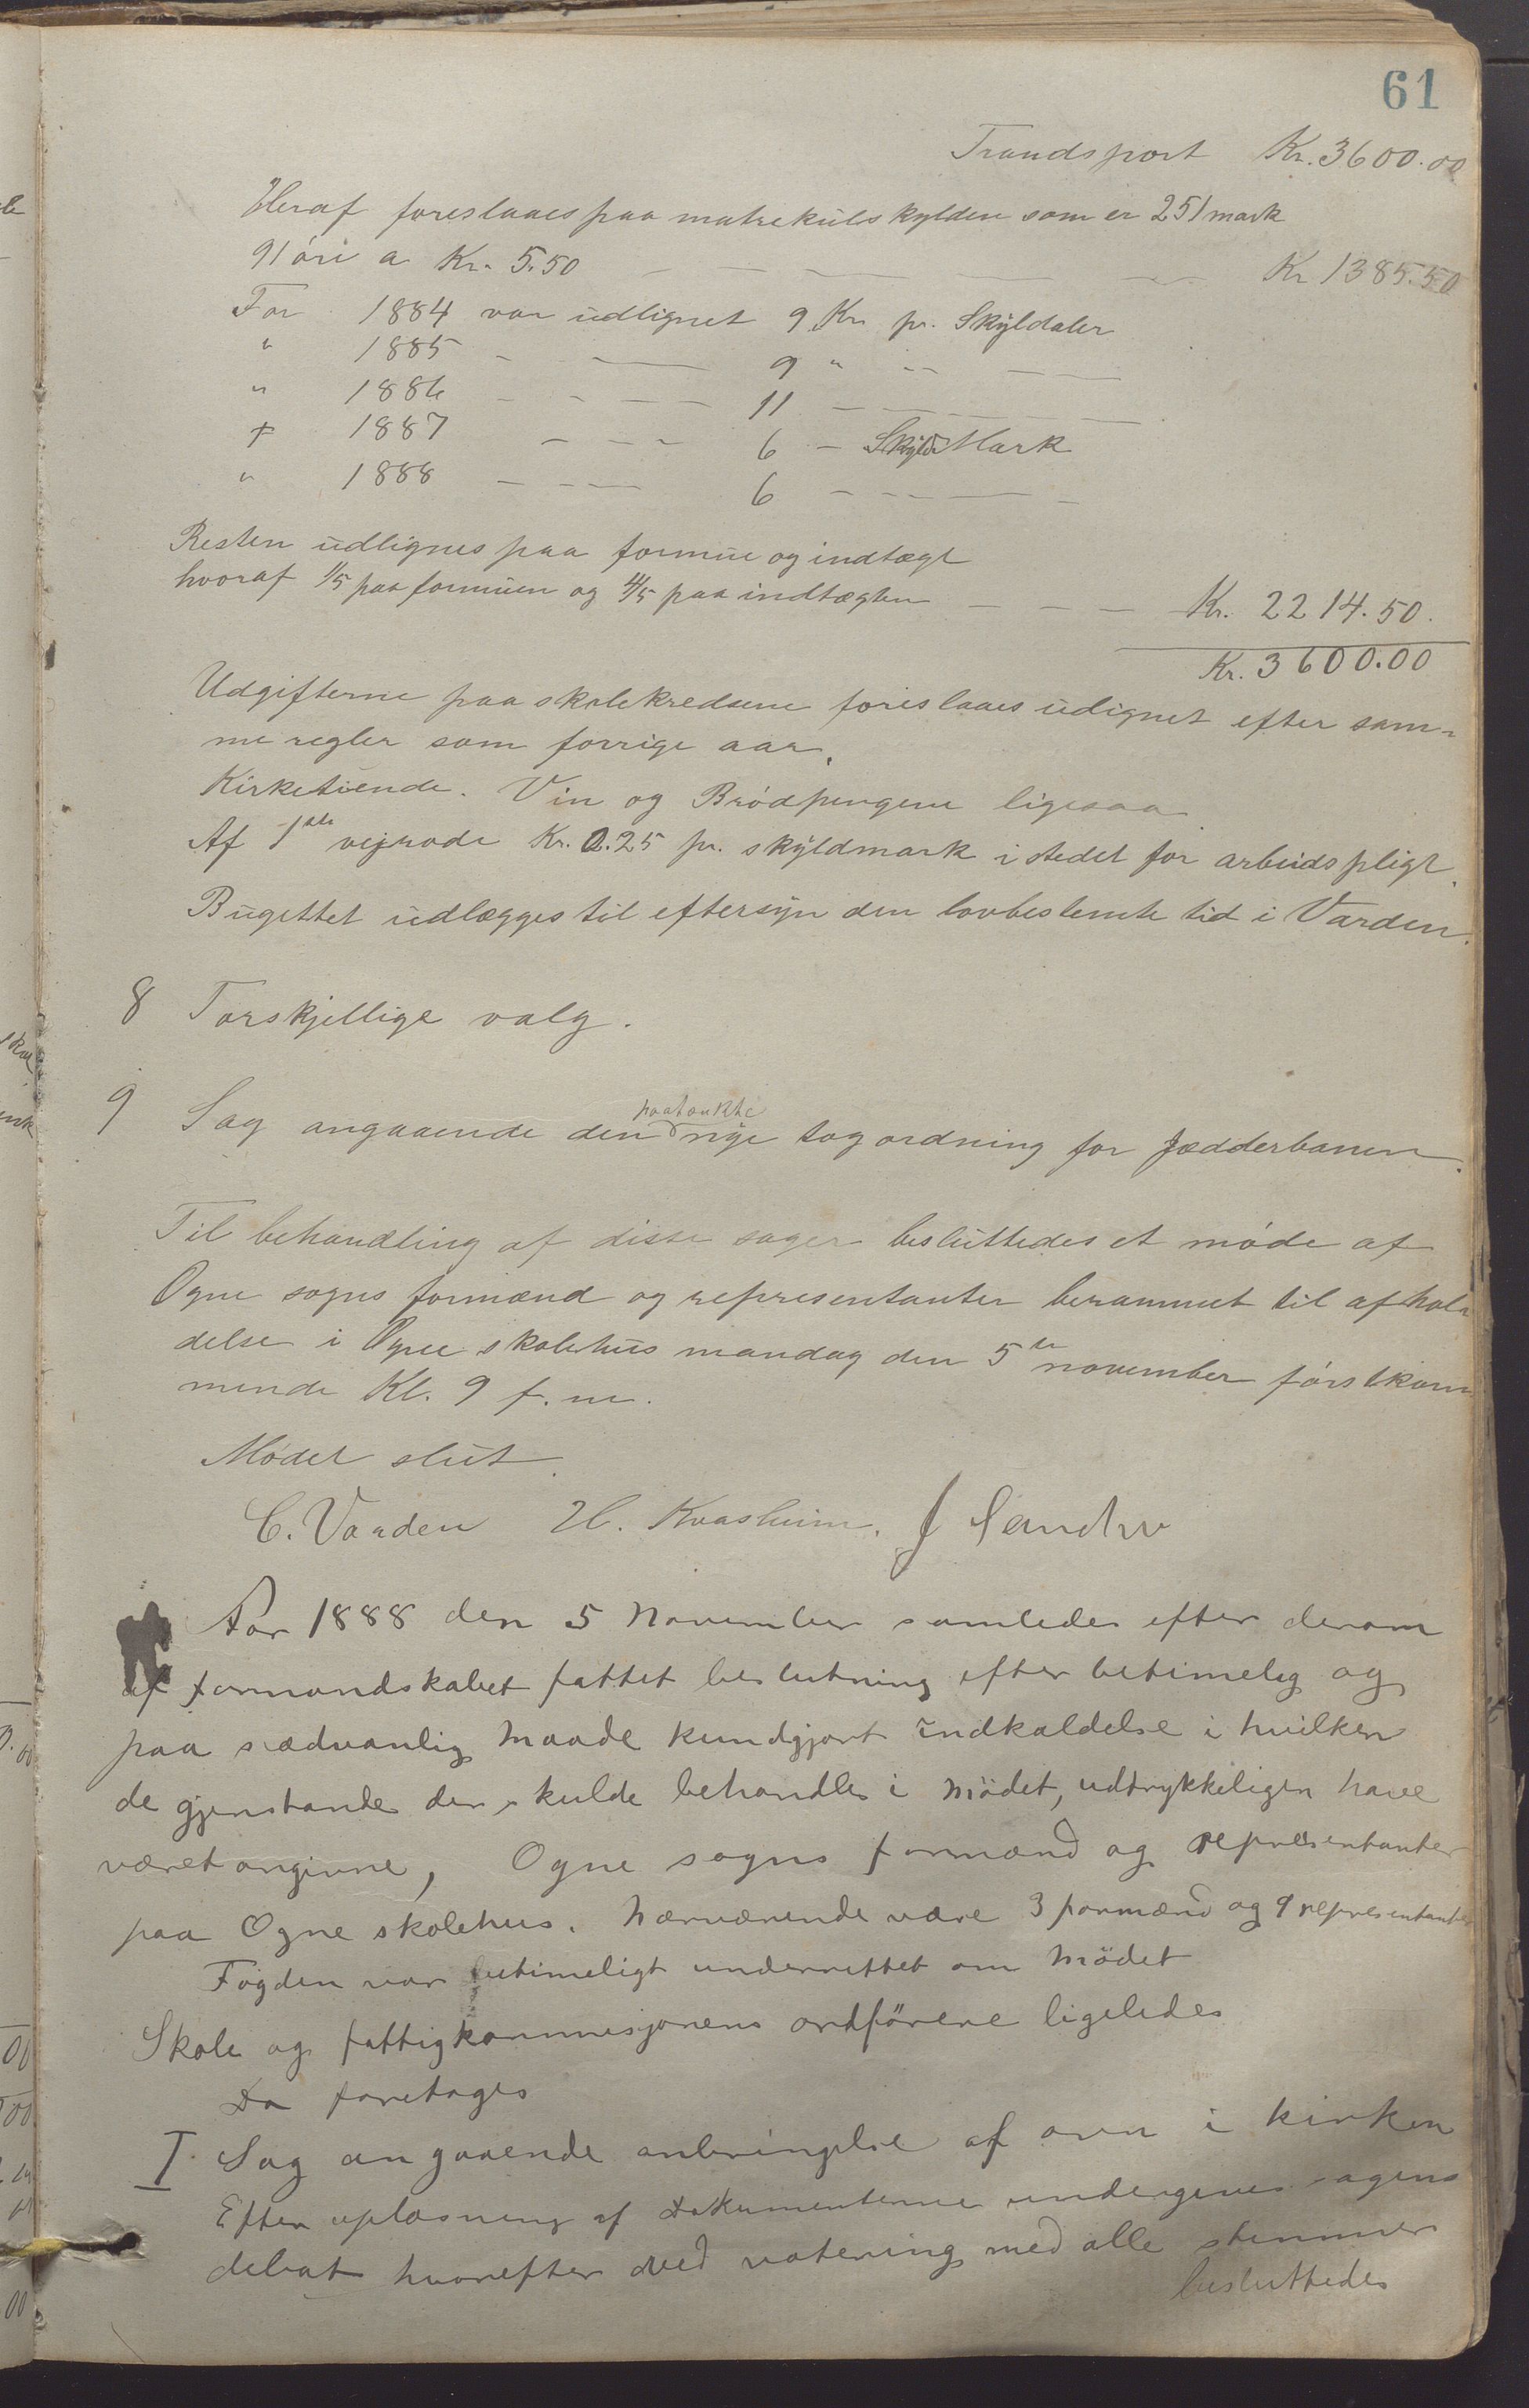 61
Trandsport Kr. 3600.00
Heraf foreslaaes paa matrekulskylden som er 251 mark
91 öri a Kr. 5.50 — — — — — Kr 1385.50
For 1884 var udlignet 9 Kr pr. Skyldaler
" 1885 - — 9 " " —
" 1886 - - — — 11 — — — —
" 1887 - - - 6 — Skyld Mark
" 1888 - - — 6 - - — -
Resten udlignes paa formue og indtægt
hvoraf 1/5 paa formuen og 4/5 paa indtægten — — — Kr. 2214.50.
Kr. 3600.00
Udgifterne paa skolekredsene foreslaaes udignet efter sam-
me regler som forrige aar.
Kirketiende. Vin og Brödpengene ligesaa
Af 1ste vejrode Kr. 0.25 pr. skyldmark istedet for arbeidspligt.
Bugettet udlægges til eftersyn den lovbestemte tid i Varden.
8 Forskjellige valg.
9 Sag angaaende den paatænkte nye togordning for Jædderbanen.
Til behandling af disse sager besluttedes et möde af
Ogne sogns formænd og representanter berammet til afhol-
delse i Ogne skolehus mandag den 5te november förstkom
mende Kl. 9 f.m.
Mödet slut.
C. Varden H. Kvasheim. J Sandve
Aar 1888 den 5 November samledes efter derom
af formandskabet fattet beslutning efter betimelig og
paa sædvanlig Maade kundgjort Indkaldelse i hvilken
de gjenstande der skulde behandles i Mödet, udtrykkeligen have
været angivne, Ogne sogns formænd og repræsentanter
paa Ogne skolehus. Nærværende være 3 formænd og 9 representanter
Fogden var betimeligt underrettet om Mödet
Skole og fattigkommesjonens ordförere ligeledes
Da foretages
I. Sag angaaende anbringelse af ovn i kirken
Efter oplæsning af Dokumenterne undergives sagens
debat hvorefter ved votering med alle stemmer
besluttedes